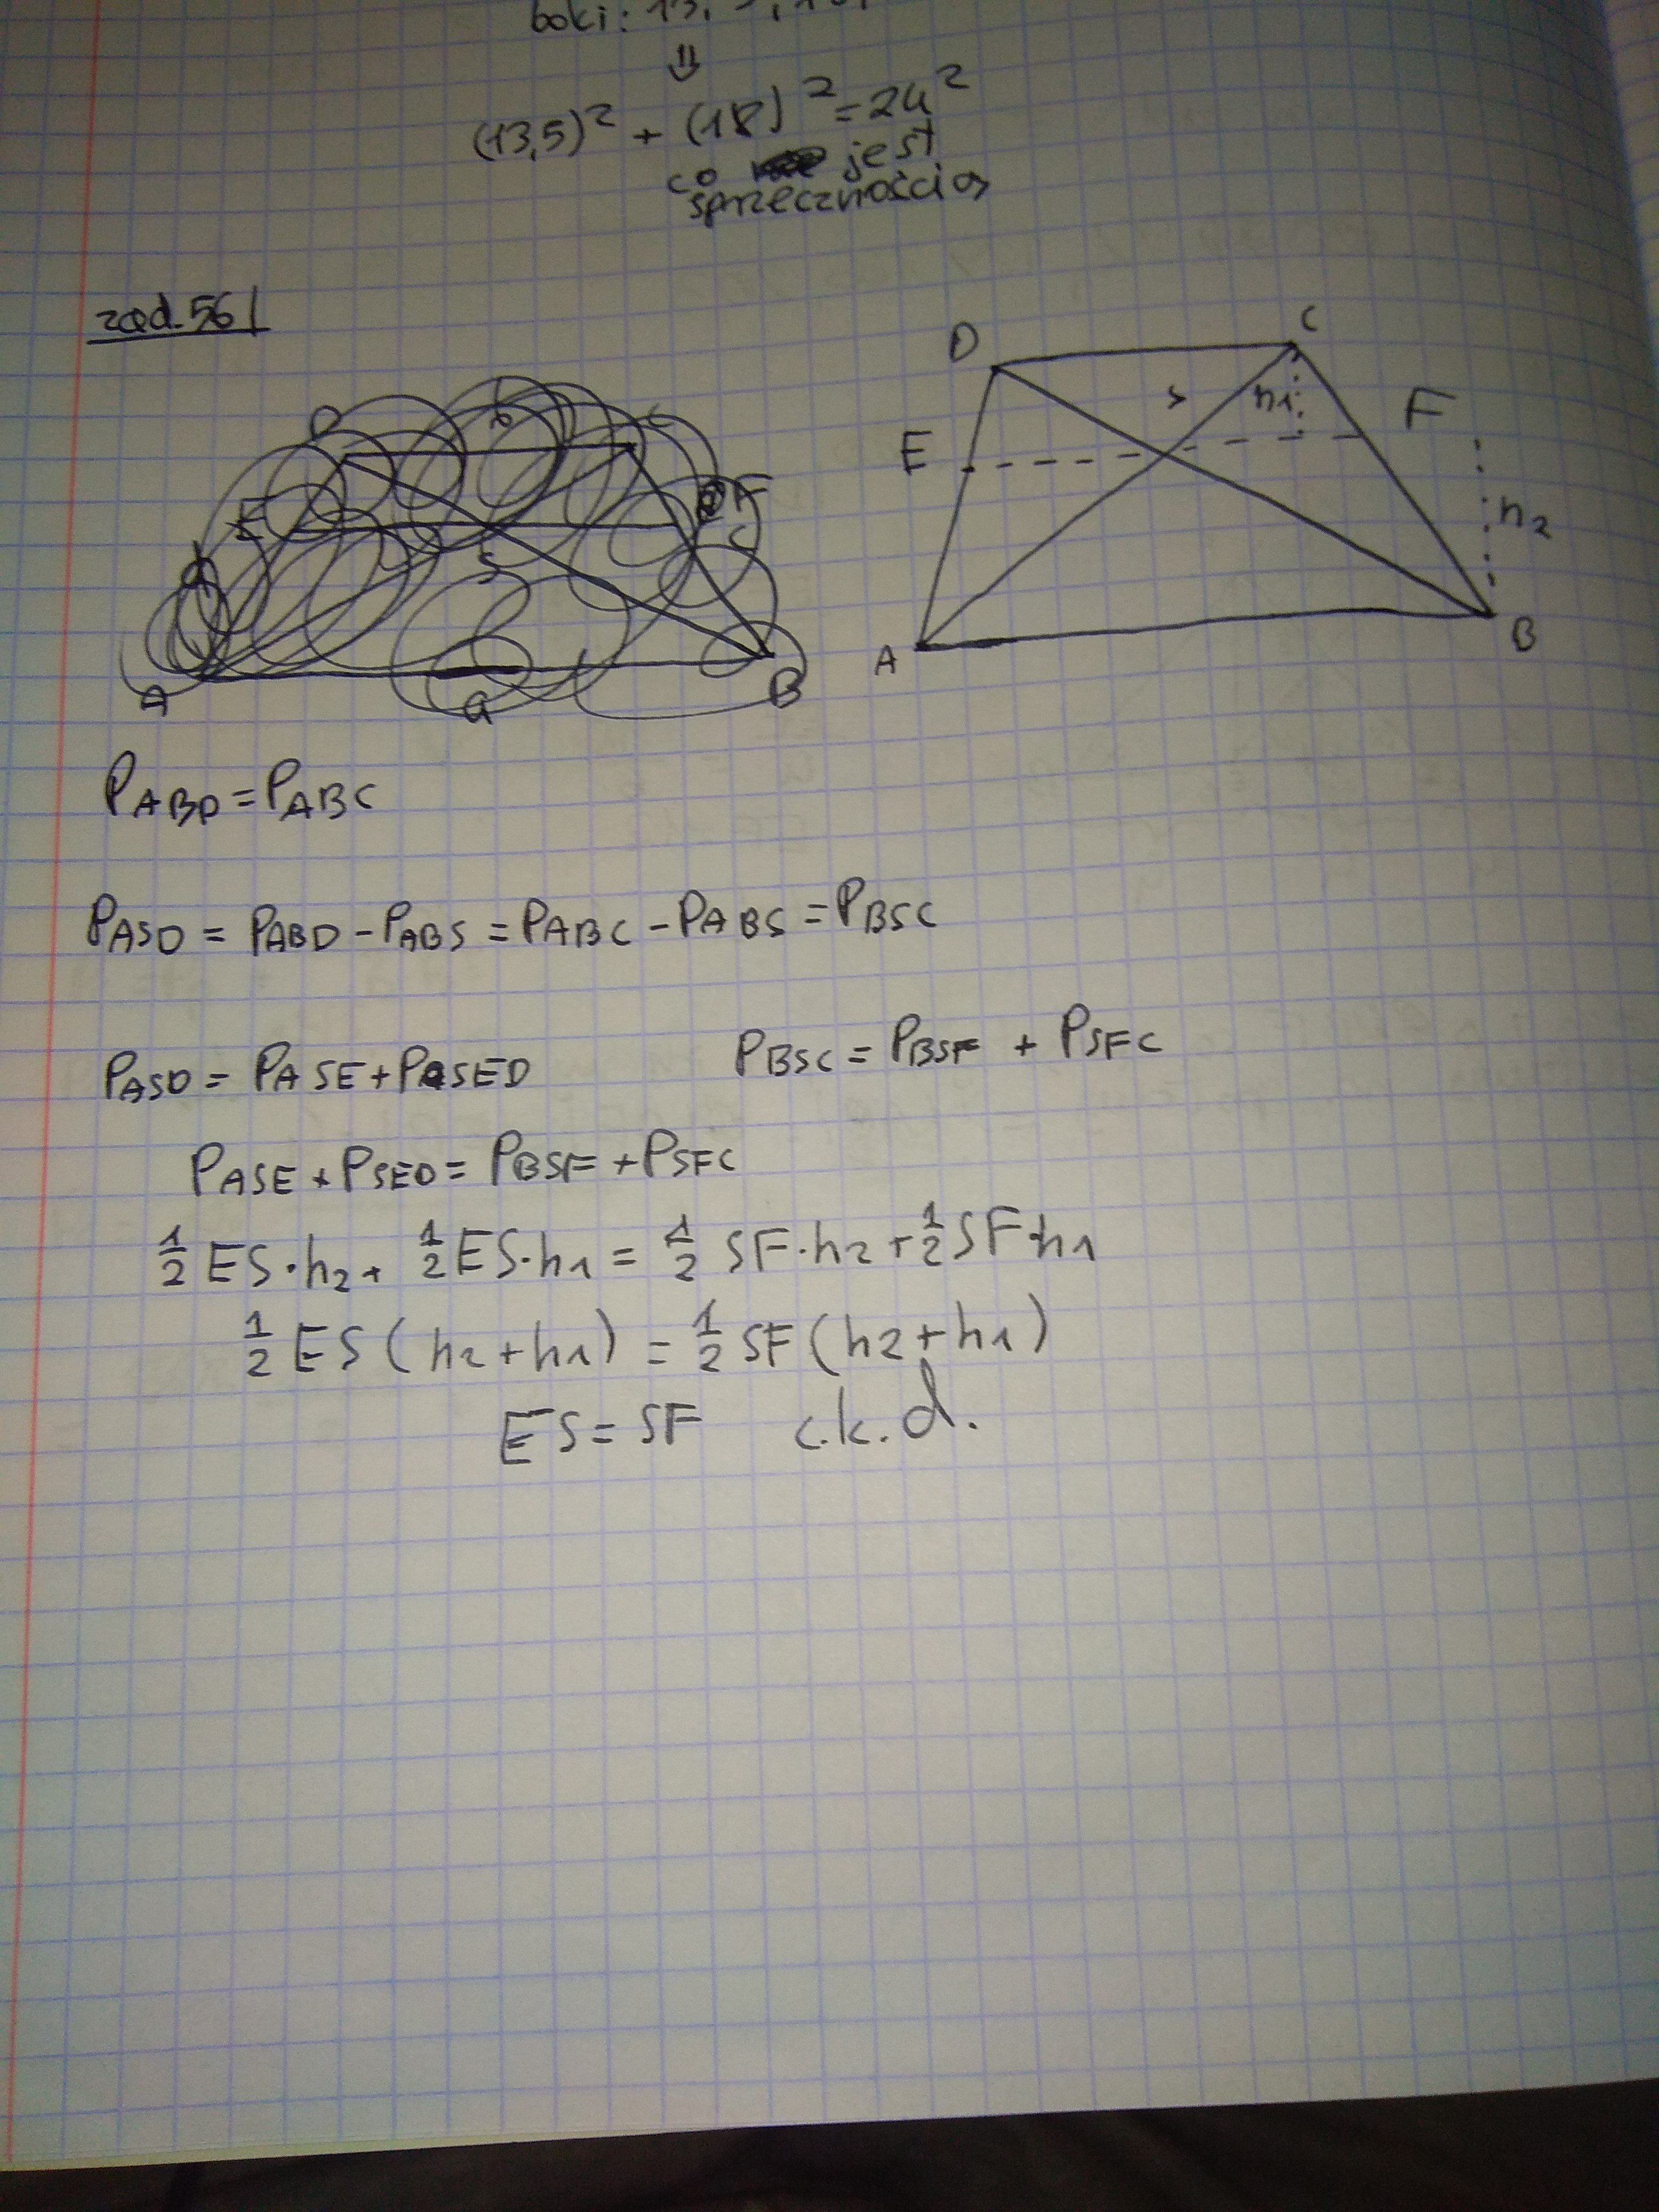 boki: 13,
⇓
(13,5)² + (18)² = 24²
co jest
sprzecznością
zad. 56
D b C
E F
C
S
A a B
D C
S h1 F
E
h2
A B
PABD = PABC
PASD = PABD - PABS = PABC - PABS = PBSC
PASD = PASE + PSED PBSC = PBSF + PSFC
PASE + PSED = PBSF + PSFC
1/2 ES·h2 + 1/2 ES·h1 = 1/2 SF·h2 + 1/2 SF·h1
1/2 ES (h2+h1) = 1/2 SF (h2+h1)
ES = SF c.k.d.